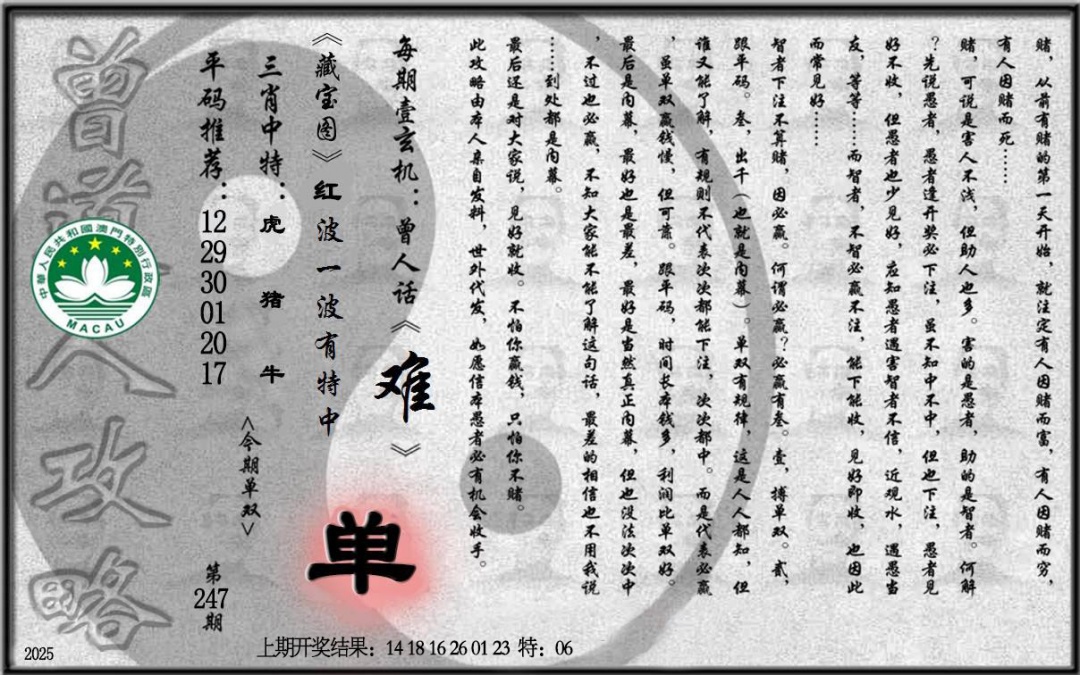 赌，从前有赌的第一天开始，就注定有人因赌而富，有人因赌而穷，
有人因赌而死……
赌，可说是害人不浅，但助人也多。害的是愚者，助的是智者。何解
？先说愚者，愚者逢开奖必下注，虽不知中不中，但也下注，愚者见
好不收，但愚者也少见好，应知愚者遇害智者不信，近观水，遇愚当
友，等等……而智者，不智必赢不注，能下能收，见好即收，也因此
而常见好……
智者下注不算赌，因必赢。何谓必赢？必赢有叁。壹，搏单双。贰，
跟单码。叁，出千（也就是内幕）。单双有规律，这是人人都知，但
谁又能了解，有规则不代表次次都能下注，次次都中。而是代表必赢
，虽单双赢钱慢，但可靠。跟单码，时间长本钱多，利润比单双好。
最后是内幕，最好也是最差，最好是当然真正内幕，但也没法次次中
，不过也必赢，不知大家能不能了解这句话，最差的相信也不用我说
……到处都是内幕。
最后还是对大家说，见好就收。不怕你赢钱，只怕你不赌。
此攻略由本人亲自发料，世外代发，如愿信本愚者必有机会收手。
每期壹玄机：曾人话《难》
《藏宝图》红波一波有特中
三肖中特：虎 猪 牛
平码推荐：12 29 30 01 20 17
<今期单双>
单
第247期
曾道人攻略
中華人民共和國澳門特別行政區
MACAU
上期开奖结果：14 18 16 26 01 23 特：06
2025